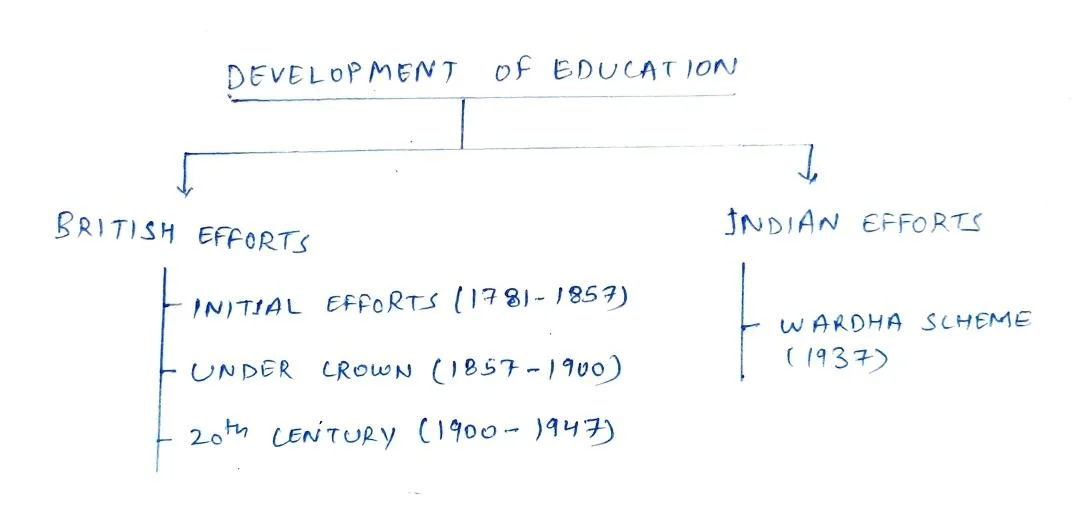 DEVELOPMENT OF EDUCATION
BRITISH EFFORTS
INITIAL EFFORTS (1781-1857)
UNDER CROWN (1857-1900)
20th CENTURY (1900-1947)
INDIAN EFFORTS
WARDHA SCHEME
(1937)